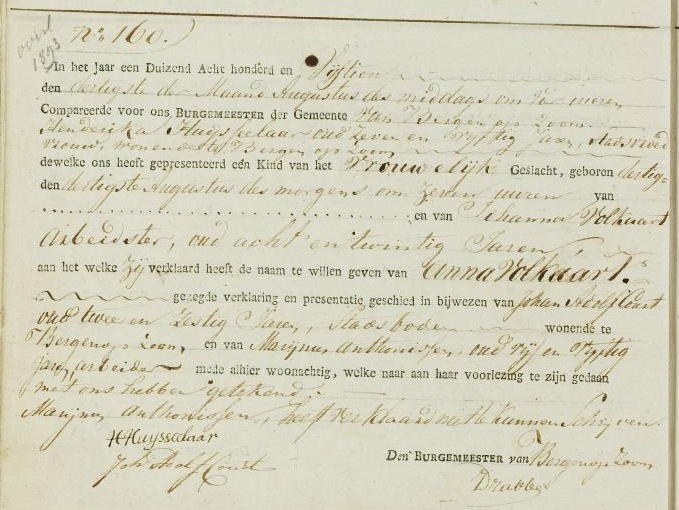 overl
1893
No 160.
In het Jaar een Duizend Acht honderd en Vijftien
den dertigste der Maand Augustus des middags om vier uuren
Compareerde voor ons BURGEMEESTER der Gemeente van Bergen op Zoom
Hendrika Huysselaar oud zeven en vyftig Jaren, stads vroed
vrouw, wonende te Bergen op Zoom
dewelke ons heeft gepresenteerd een Kind van het Vrouwelijk Geslacht, geboren dertig=
den dertigste Augustus des morgens om zeven uuren van
en van Johanna Volkaart
Arbeidster, oud acht en twintig Jaren
aan het welke Zij verklaard heeft de naam te willen geven van Anna Volkaart.
gezegde verklaring en presentatie geschied in bijwezen van Johan Adolf Court
oud twee en Zestig Jaren, Stadsboden wonende te
Bergen op Zoom, en van Marijnus Anthonissen, oud vijf en Vyftig
Jaren, arbeider mede alhier woonachtig, welke naar aan haar voorlezing te zijn gedaan
met ons hebben getekend;
Marijnus Anthonissen, heeft verklaard niet te kunnen Schrijven.
H Huysselaar
Joh Adolf Court
Den BURGEMEESTER van Bergen op Zoom